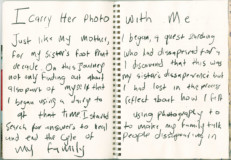 I Carry Her Photo With Me
Just like my Mother,
for my sister's foot that
decade. On this Journey
not only finding out about
also part of myself that
I began using a diary to
at that time. I started
Search for answers to real
and end the cycle of
my family
I began, a quest searching
who had disappeared for a
I discovered that this was
my sister's disappearance but
I had lost in the process
reflect about how I felt
using photography to
to make my family talk
people disappearing in